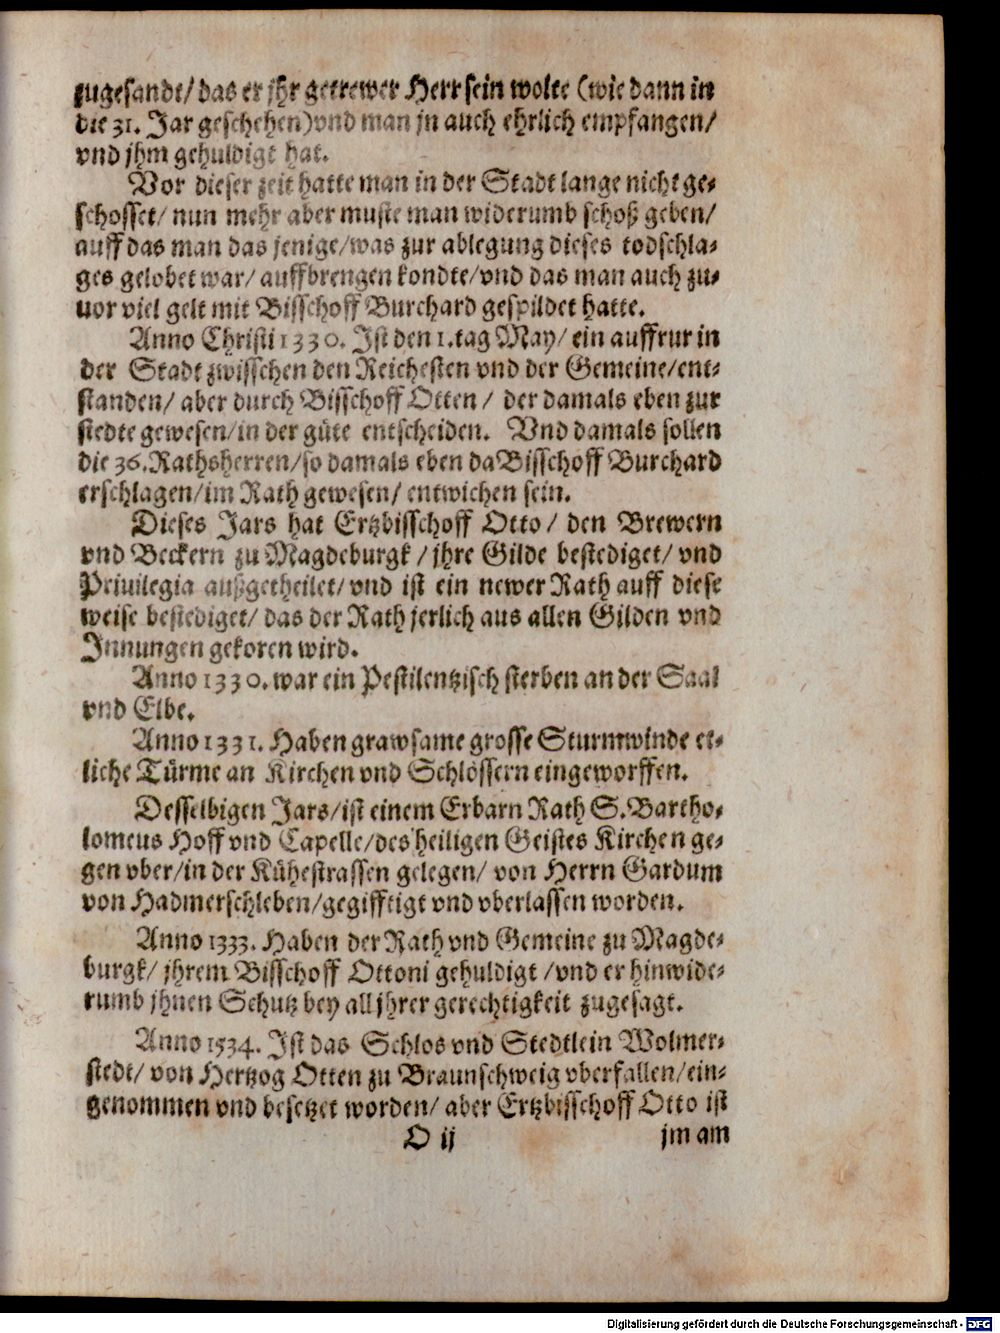 zugesandt/das er jhr getrewer Herr sein wolte (wie dann in
die 31. Jar geschehen) vnd man jn auch ehrlich empfangen/
vnd jhm gehuldigt hat.
Vor dieser zeit hatte man in der Stadt lange nicht ge-
schosset/ nun mehr aber muste man widerumb schoß geben/
auff das man das jenige/was zur ablegung dieses todschla-
ges gelobet war/ auffbrengen kondte/vnd das man auch zu-
uor viel gelt mit Bisschoff Burchard gespildet hatte.
Anno Christi 1330. Ist den 1.tag May/ ein auffrur in
der Stadt zwisschen den Reichesten vnd der Gemeine/ent-
standen/ aber durch Bisschoff Otten / der damals eben zur
stedte gewesen/in der güte entscheiden. Vnd damals sollen
die 36.Rathsherren/so damals eben da Bisschoff Burchard
erschlagen/im Rath gewesen/ entwichen sein.
Dieses Jars hat Ertzbisschoff Otto / den Brewern
vnd Beckern zu Magdeburgk / jhre Gilde bestediget/ vnd
Priuilegia außgetheilet/ vnd ist ein newer Rath auff diese
weise bestediget/ das der Rath jerlich aus allen Gilden vnd
Innungen gekoren wird.
Anno 1330. war ein Pestilentzisch sterben an der Saal
vnd Elbe.
Anno 1331. Haben grawsame grosse Sturmwinde et-
liche Türme an Kirchen vnd Schlössern eingeworffen.
Desselbigen Jars/ist einem Erbarn Rath S.Bartho-
lomeus Hoff vnd Capelle/des heiligen Geistes Kirchen ge-
gen vber/in der Kühestrassen gelegen/ von Herrn Gardum
von Hadmerschleben/gegifftigt vnd vberlassen worden.
Anno 1333. Haben der Rath vnd Gemeine zu Magde-
burgk/ jhrem Bisschoff Ottoni gehuldigt /vnd er hinwide-
rumb jhnen Schutz bey all jhrer gerechtigkeit zugesagt.
Anno 1534. Ist das Schlos vnd Stedtlein Wolmer-
stedt/ von Hertzog Otten zu Braunschweig vberfallen/ein-
genommen vnd besetzet worden/ aber Ertzbisschoff Otto ist
O ij jm am
Digitalisierung gefördert durch die Deutsche Forschungsgemeinschaft - DFG